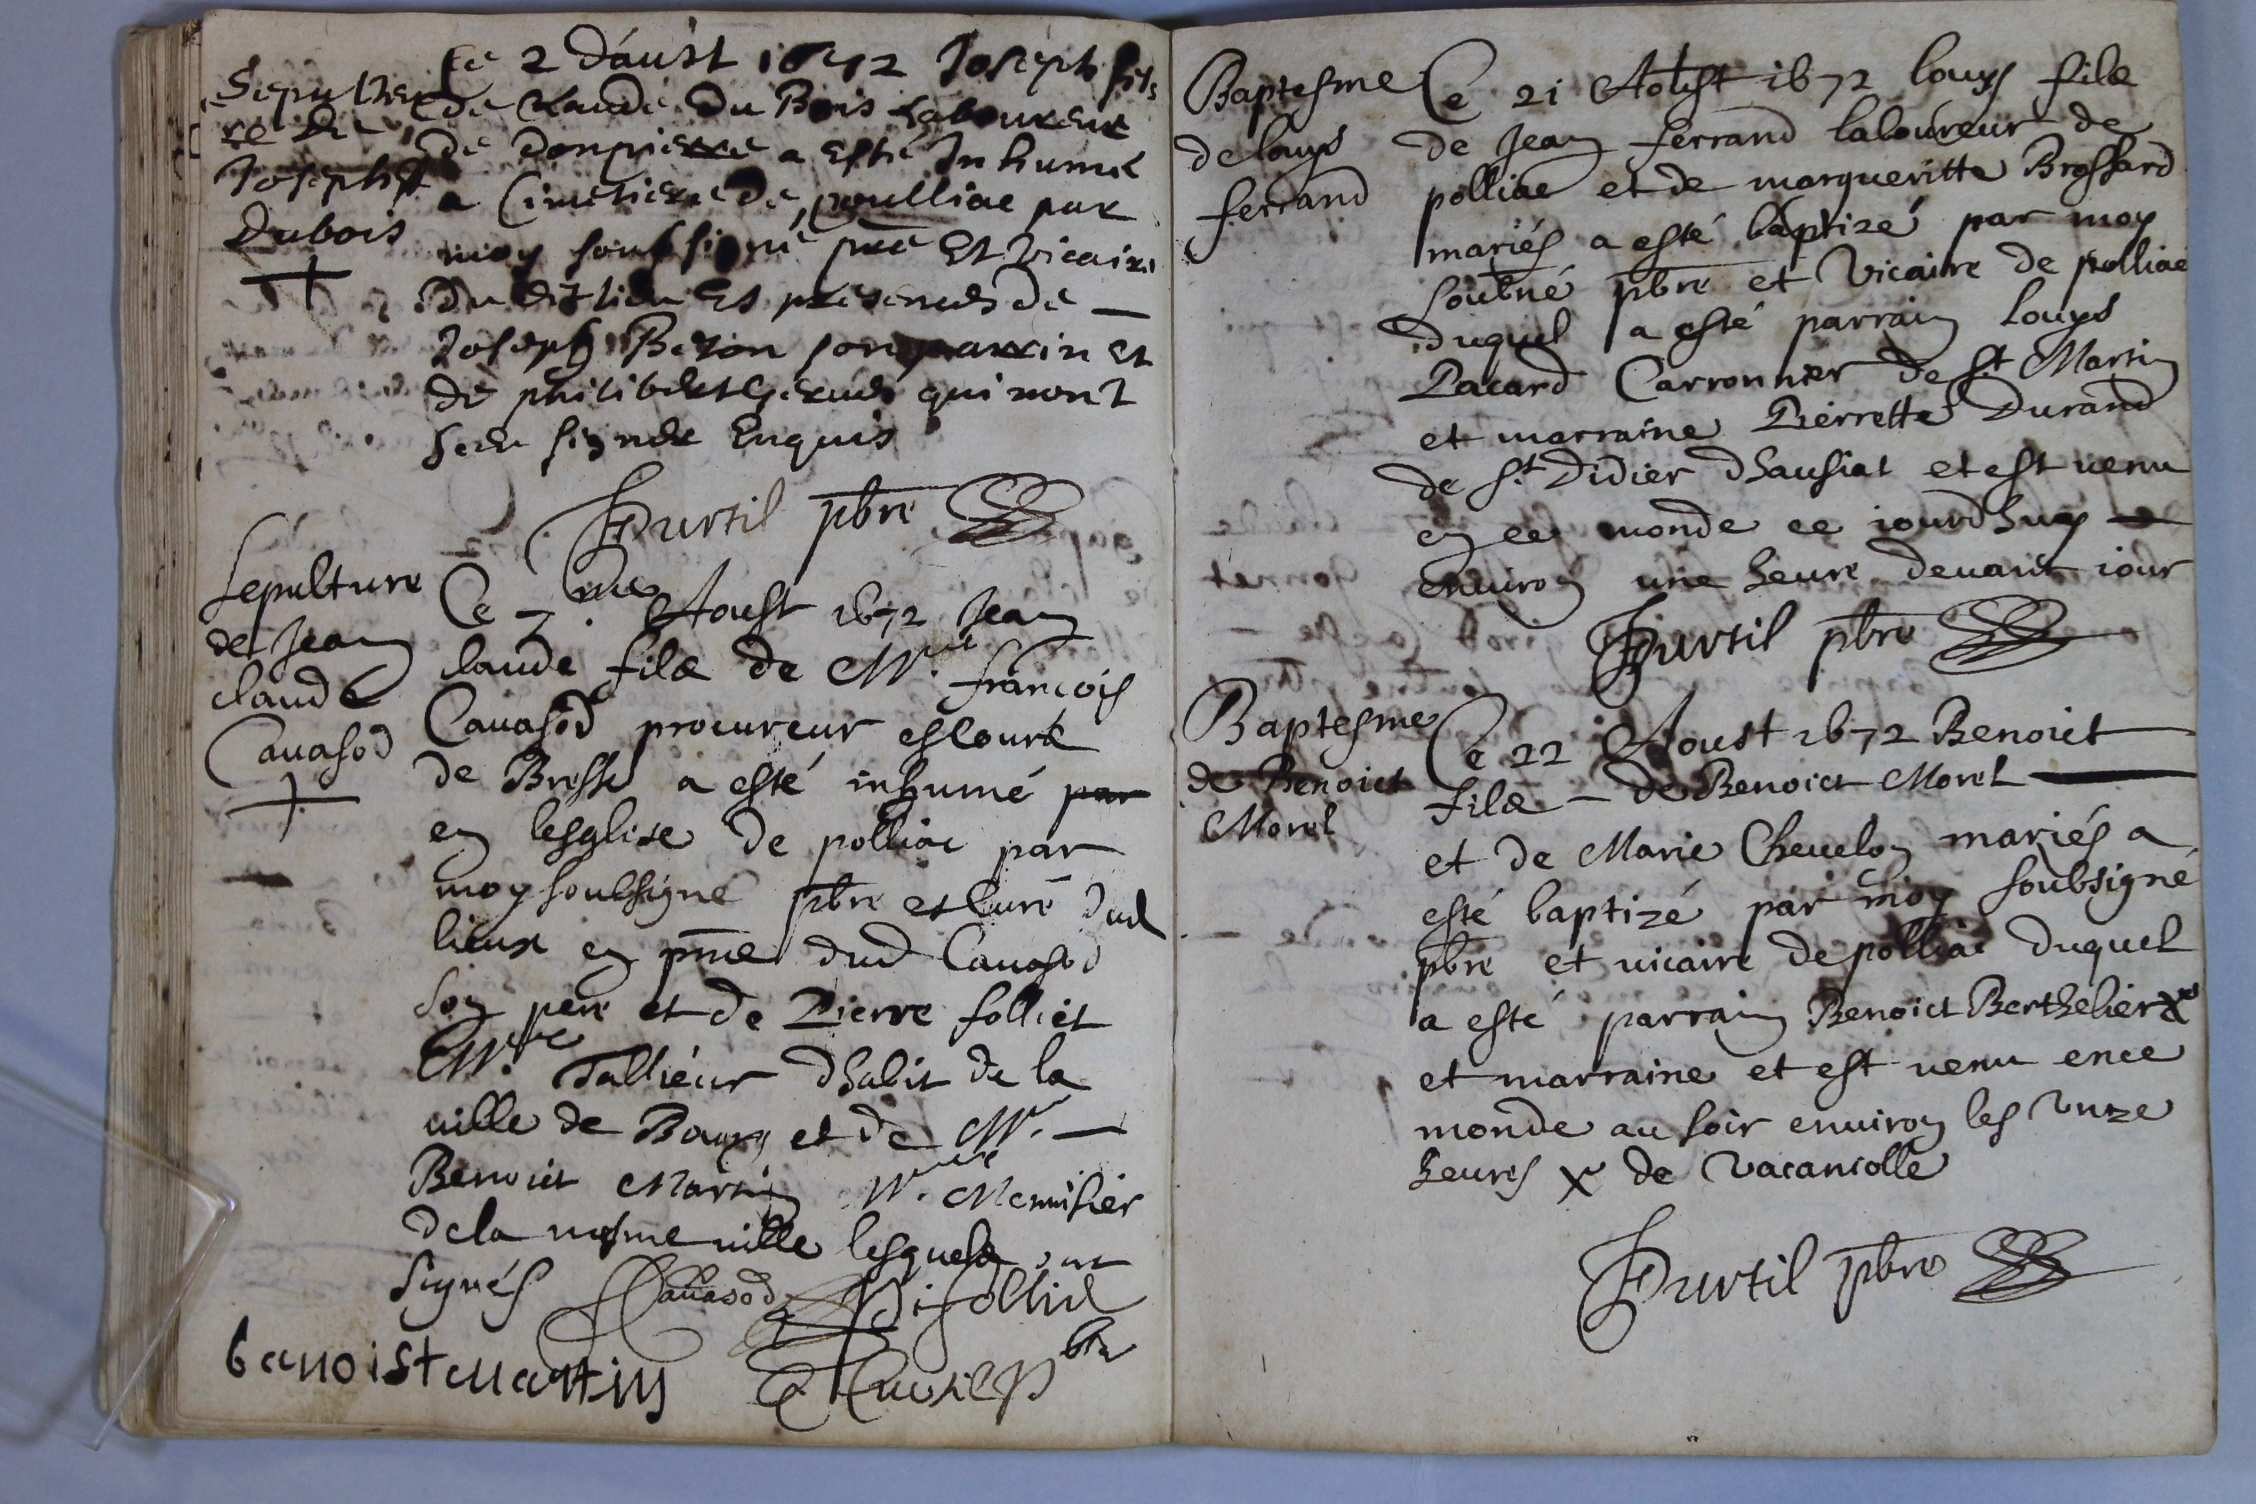 Sepultu
re de
Joseph
Dubois
Ce 2 d'aust 1672 Joseph fils
de Claude Du Bois Laboureur
de Donpierre a esté Inhumé
a Cimetiere de poulliac par
moy soubsigné pre Et Vicaire
Du dit lieu Es presences de
Joseph Bezon son parrin et
de philibert qui nont
sceu signer Enquis
Hurtil pbre
Sepulture
de Jean
claude
Cavasod
Ce 7.me Aoust 1672 Jean
claude filz de Mre françois
Cavasod procureur escourt
de Bresse a esté inhumé par
en lesglise de polliac par
moy soubsigné pbre et curé dud
lieux en pnce dud Cavasod
son pere et de Pierre folliet
Mre Tallieur dhabit de la
ville de Bourg et de Mr.
Benoict Martin Mre Menusier
de la mesme ville lesquelz ont
signés Cavasod folliet
benoist martin Hurtil pbre
Baptesme
de louys
ferrand
Ce 21 Aoust 1672 louys filz
de Jean ferrand laboureur de
polliac et de margueritte Brossard
mariés a esté baptizé par moy
soubné pbre et Vicaire de polliac
duquel a esté parrain louys
Pacard Carronnier de St Martin
et marraine Pierrette Durand
de St Didier dhausiat et est venu
en ce monde ce iourdhuy
environ une heure devant iour
Hurtil pbre
Baptesme
de Benoict
Morel
Ce 22 Aoust 1672 Benoict
filz de Benoict Morel
et de Marie Chevelon mariés a
esté baptizé par moy soubsigné
pbre et vicaire de polliac duquel
a esté parrain Benoict Berthelier x
et marraine et est venu ence
monde au soir environ les unze
heures x de Vacancolle
Hurtil pbre